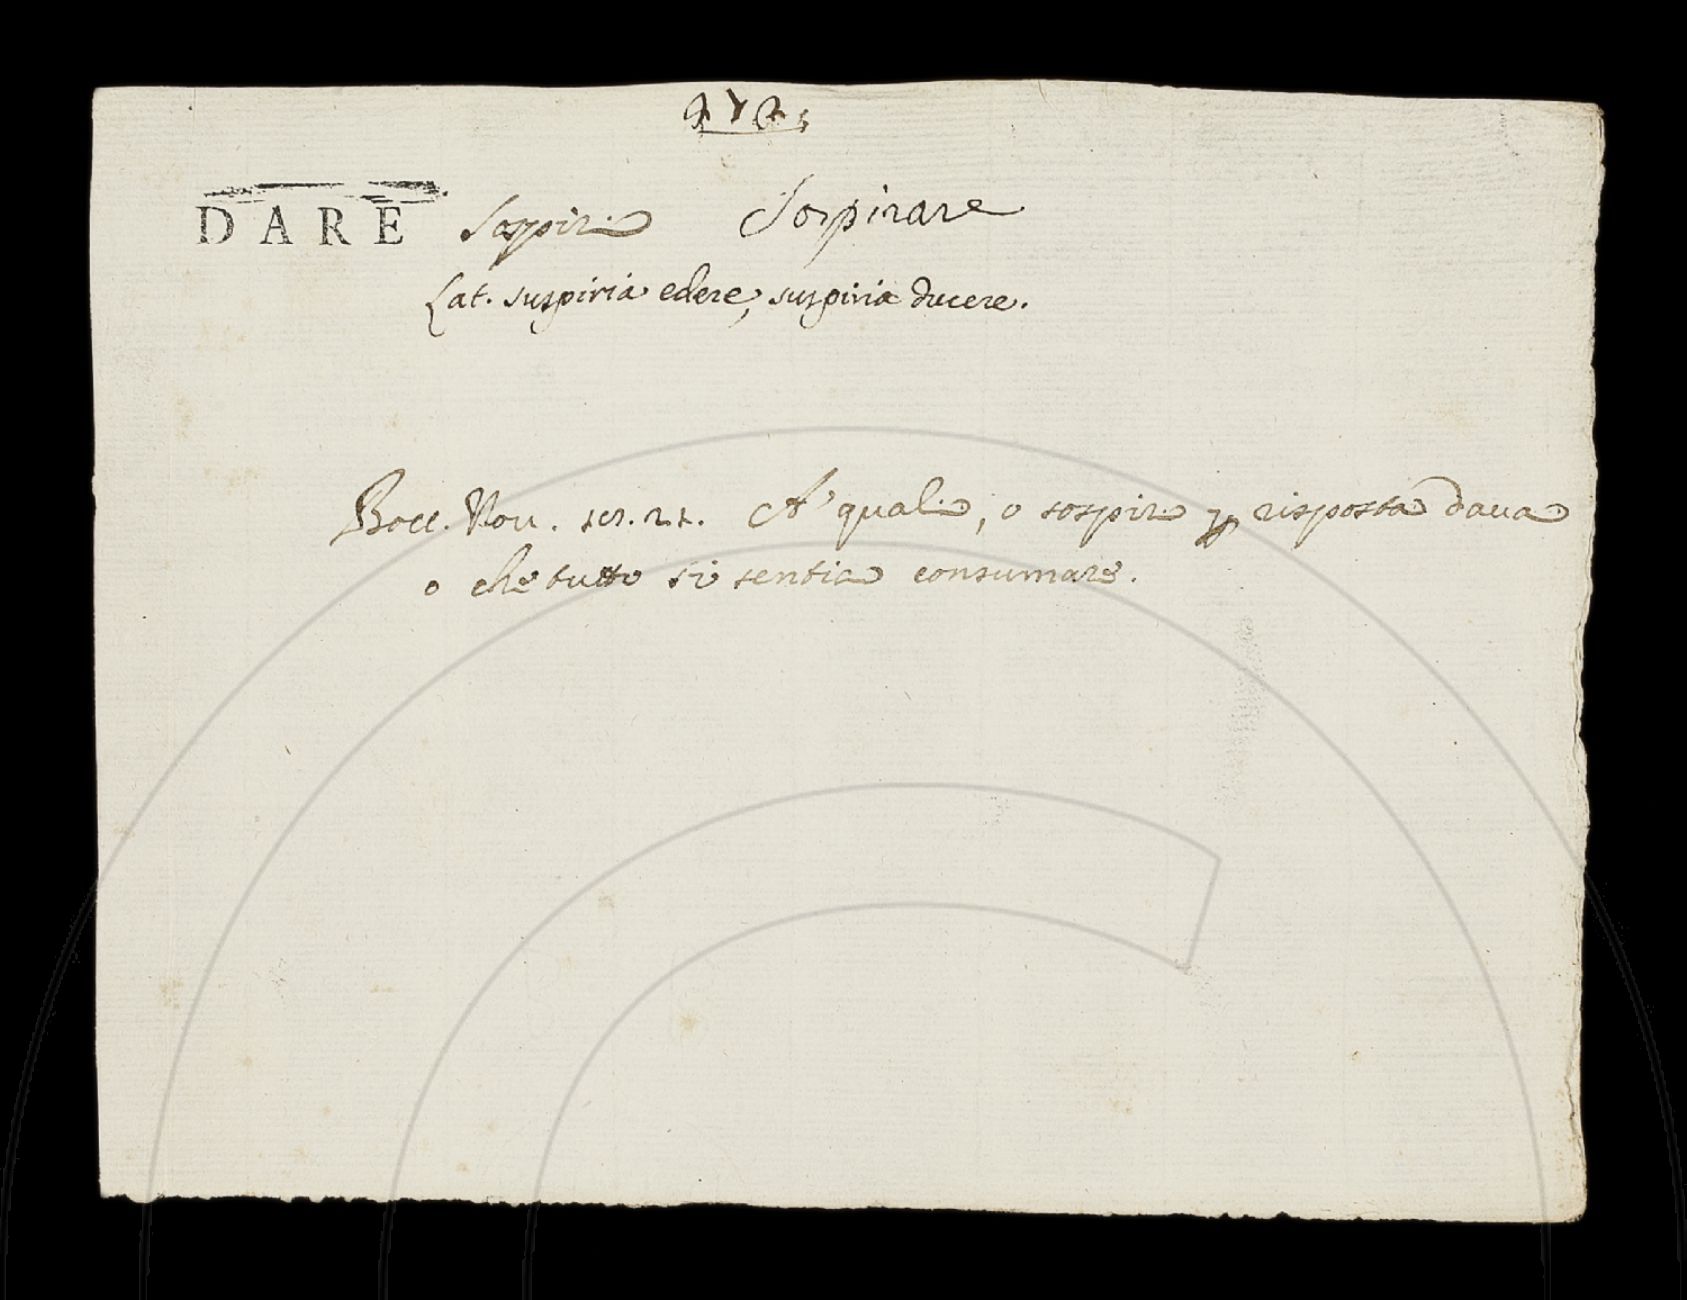 DARE Sospiri Sospirare
Lat. suspiria edere, suspiria ducere.
Bocc. Nov. A' quali, o sospiri p risposta dava
o che tutto si sentia consumare.